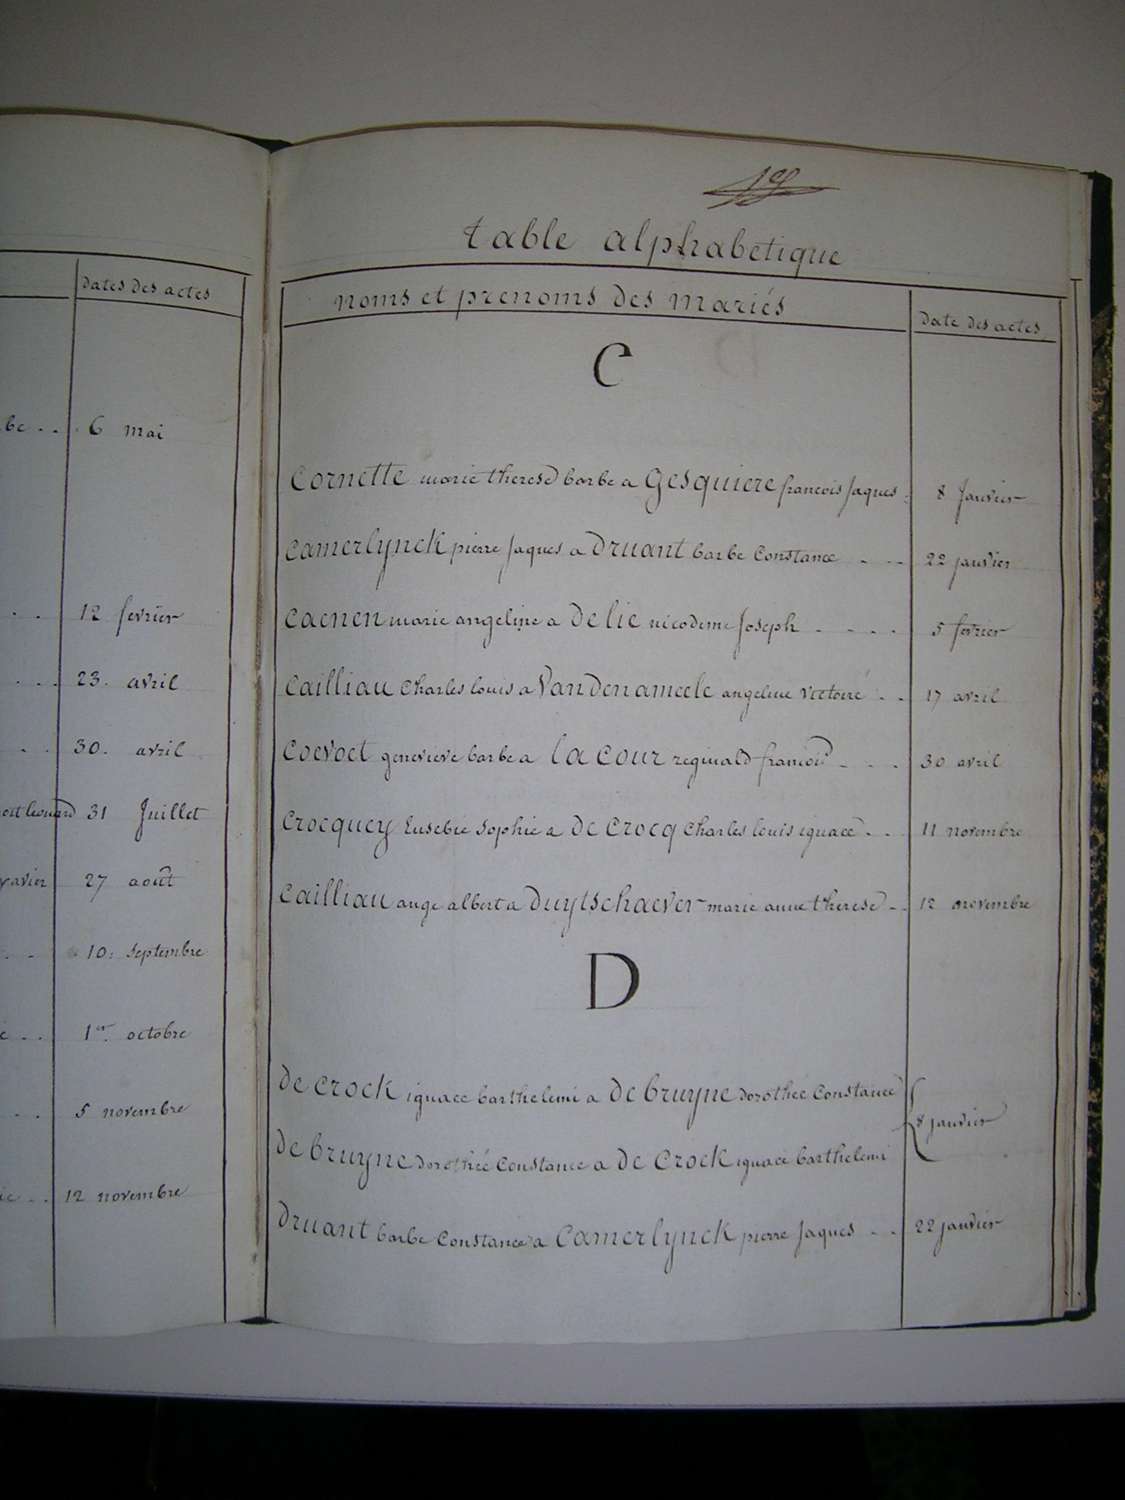 dates des actes
be . . . 6 mai
. . 12 fevrier
. . . 23. avril
. . 30. avril
leonard 31 Juillet
xavier 27 août
. . 10: septembre
. . 1er. octobre
. . 5 novembre
ie . . 12 novembre
table alphabetique
noms et prenoms des mariés
date des actes
C
cornette marie therese barbe a gesquiere francois Jaques 8 Janvier
camerlynck pierre Jaques a druant barbe Constance . . . 22 janvier
caenen marie angeline a de lie nicodeme Joseph . . . . 5 fevrier
cailliau Charles louis a Vandenameele angeline victoire . . 17 avril
coevoet genevieve barbe a la cour reginald francois . . . 30 avril
crocquey Eusebie sophie a de crocq Charles louis ignace . . . 11 novembre
cailliau ange albert a duytschaever marie anne therese . . 12 novembre
D
de crock ignace barthelemi a de bruyne dorothée Constance
8 janvier
de bruyne dorothée Constance a de crock ignace barthelemi
druant barbe Constance a camerlynck pierre Jaques . . . 22 janvier